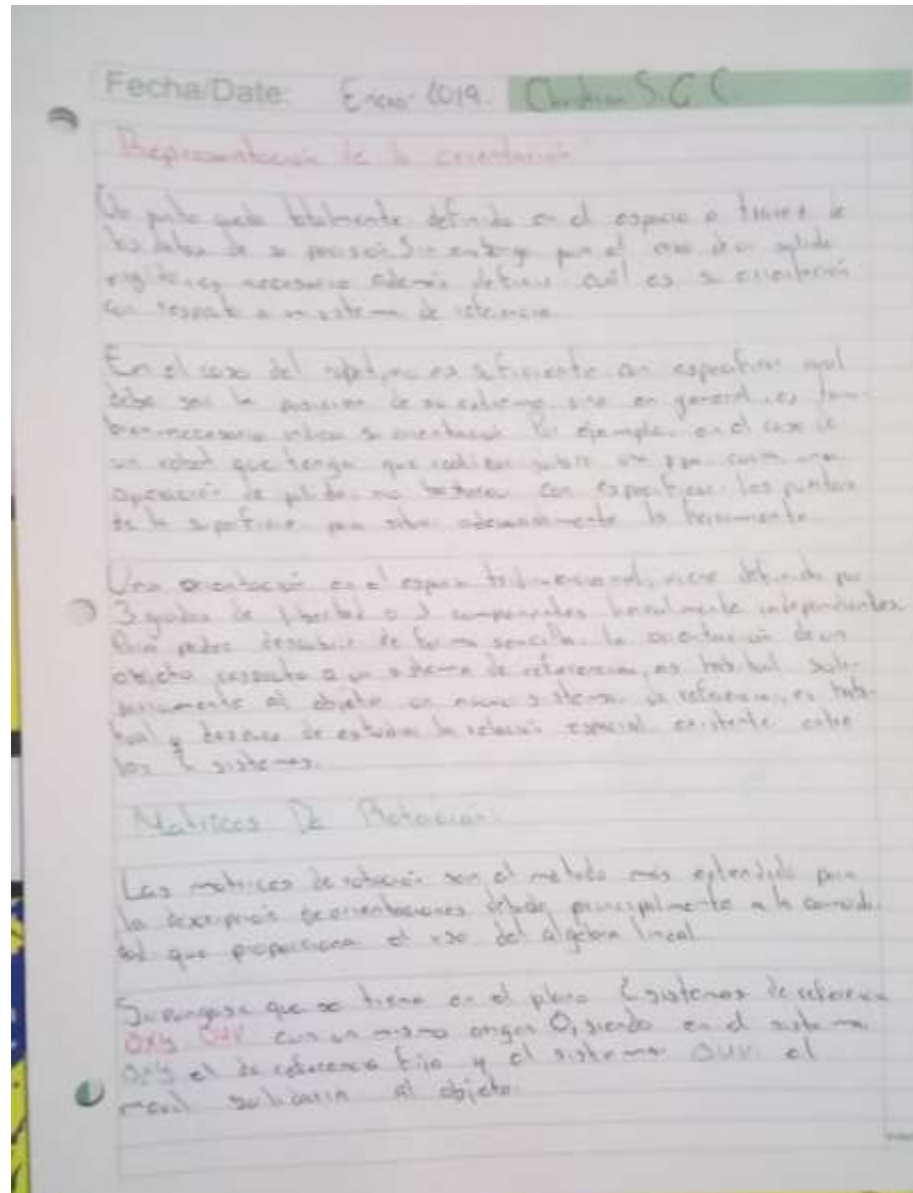 Fecha/Date: Enero-2019. Christian S.G.C.
Representación de la orientación
Un punto queda totalmente definido en el espacio a traves de
los datos de su posición. Sin embargo para el caso de un solido
rigido, es necesario además definir cuál es su orientación
con respecto a un sistema de referencia.
En el caso del robot, no es suficiente con especificar cual
debe ser la posicion de su extremo, sino en general, es tam-
bien necesario indicar su orientación. Por ejemplo, en el caso de
un robot que tenga que realizar sobre una curva una
operación de pulido, no bastaria con especificar los puntos
de la superficie para situar adecuadamente la herramienta
Una orientación en el espacio tridimensional, viene definida por
3 grados de libertad o 3 componentes linealmente independientes.
Para poder describir de forma sencilla la orientación de un
objeto respecto a un sistema de referencia, es habitual soli-
dariamente al objeto un nuevo sistema de referencia, es habi-
tual y despues de estudiar la relación espacial existente entre
los 2 sistemas.
Matrices De Rotación.
Las matrices de rotación son el metodo más extendido para
la descripción de orientaciones, debido principalmente a la comodi-
dad que proporciona el uso del algebra lineal.
Supongase que se tiene en el plano 2 sistemas de referencia
OXY OUV con un mismo origen O, siendo en el sistema
OXY el de referencia fijo y el sistema OUV el
movil solidario al objeto.